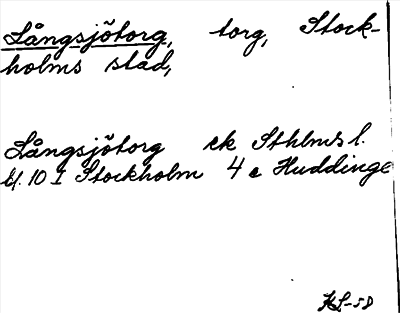 Långsjötorg, torg, Stock-
holms stad,
Långsjötorg ek Sthlms l.
bl. 10 I Stockholm 4 c Huddinge
HL-58